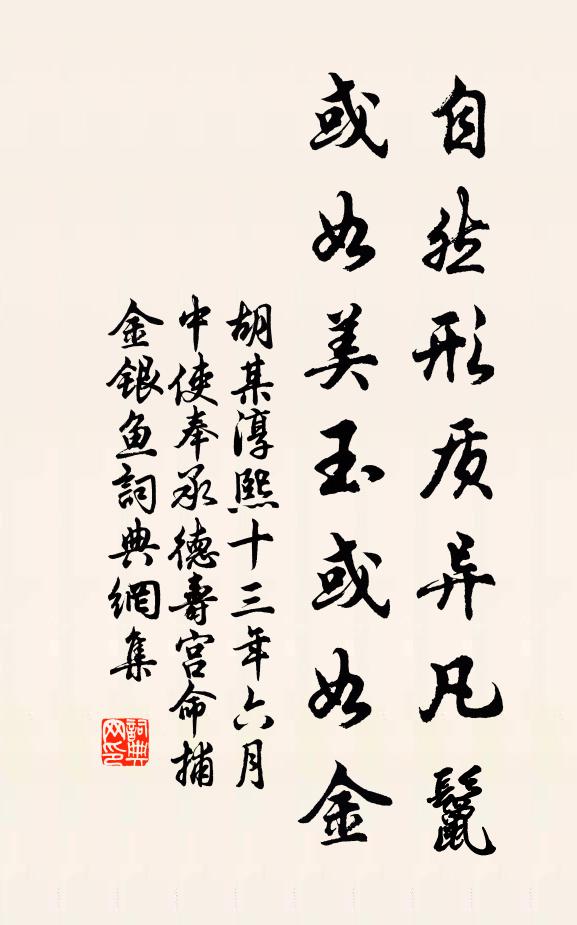 自然形质异凡鬣
或如美玉或如金
胡某淳熙十三年六月
中使奉承德壽宫命捕
金银鱼詞典網集
詞典网印